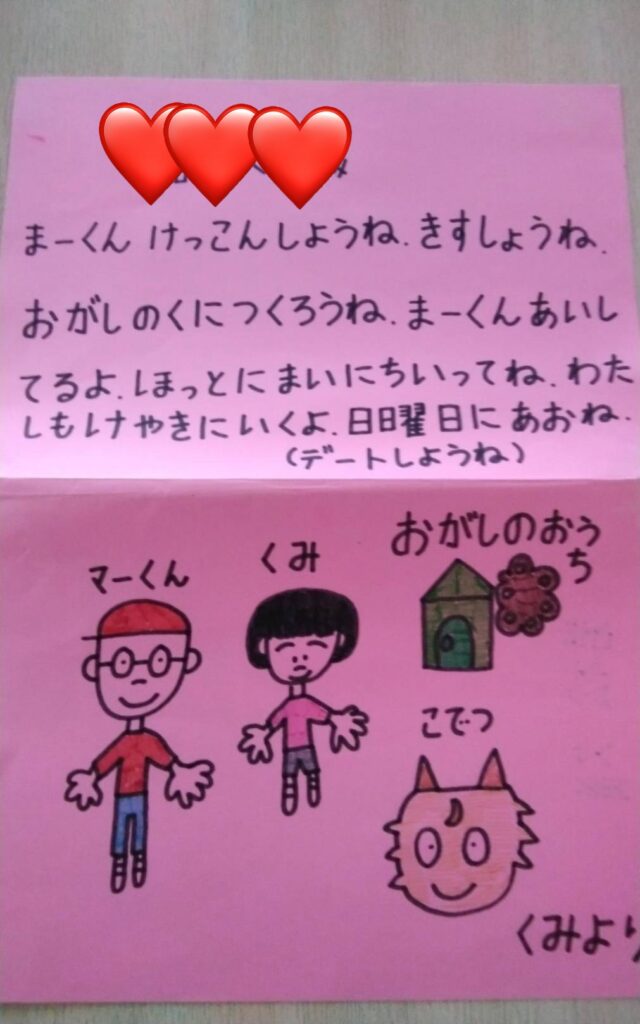 まーくん けっこんしようね.きすしょうね.
おがしのくにつくろうね.まーくんあいし
てるよ.ほっとにまいにちいってね.わた
しもけやきにいくよ.日曜日にあおね.
(デートしようね)
おがしのおうち
くみ
マーくん
こでつ
くみより